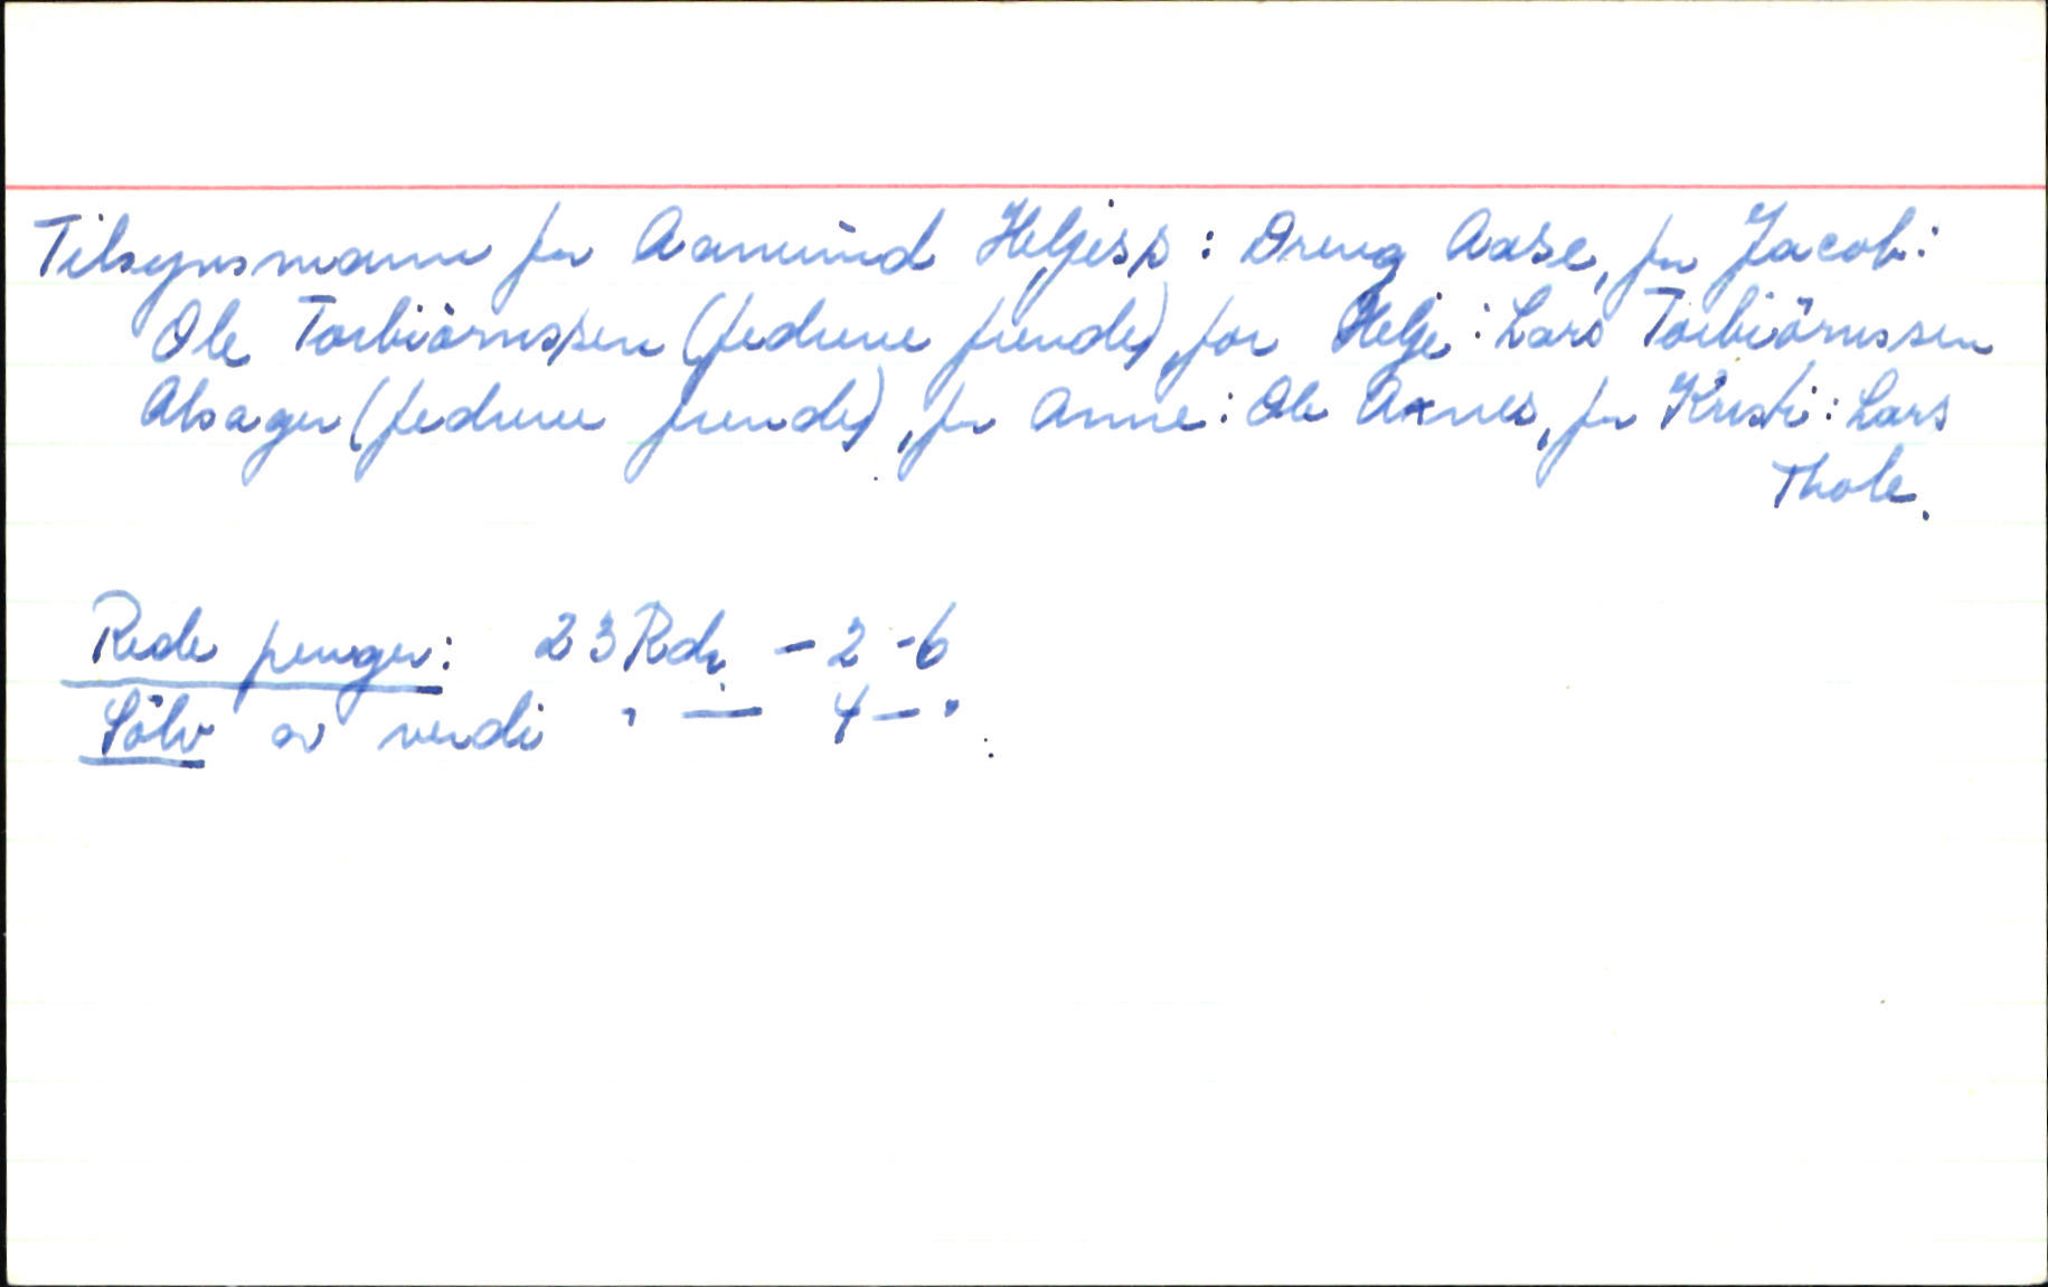 Tilsynsmann for Aamund Heljess: Dreng Aase, for Jacob:
Ole Torbiörnssen (fedrene frende), for Helje: Lars Torbiörnssen
Alsager (fedrene frende), for Anne: Ole Axnes, for Kristi: Lars
Thole.
Rede penger: 23 Rdr. - 2 - 6
Sölv av verdi " — 4 — "